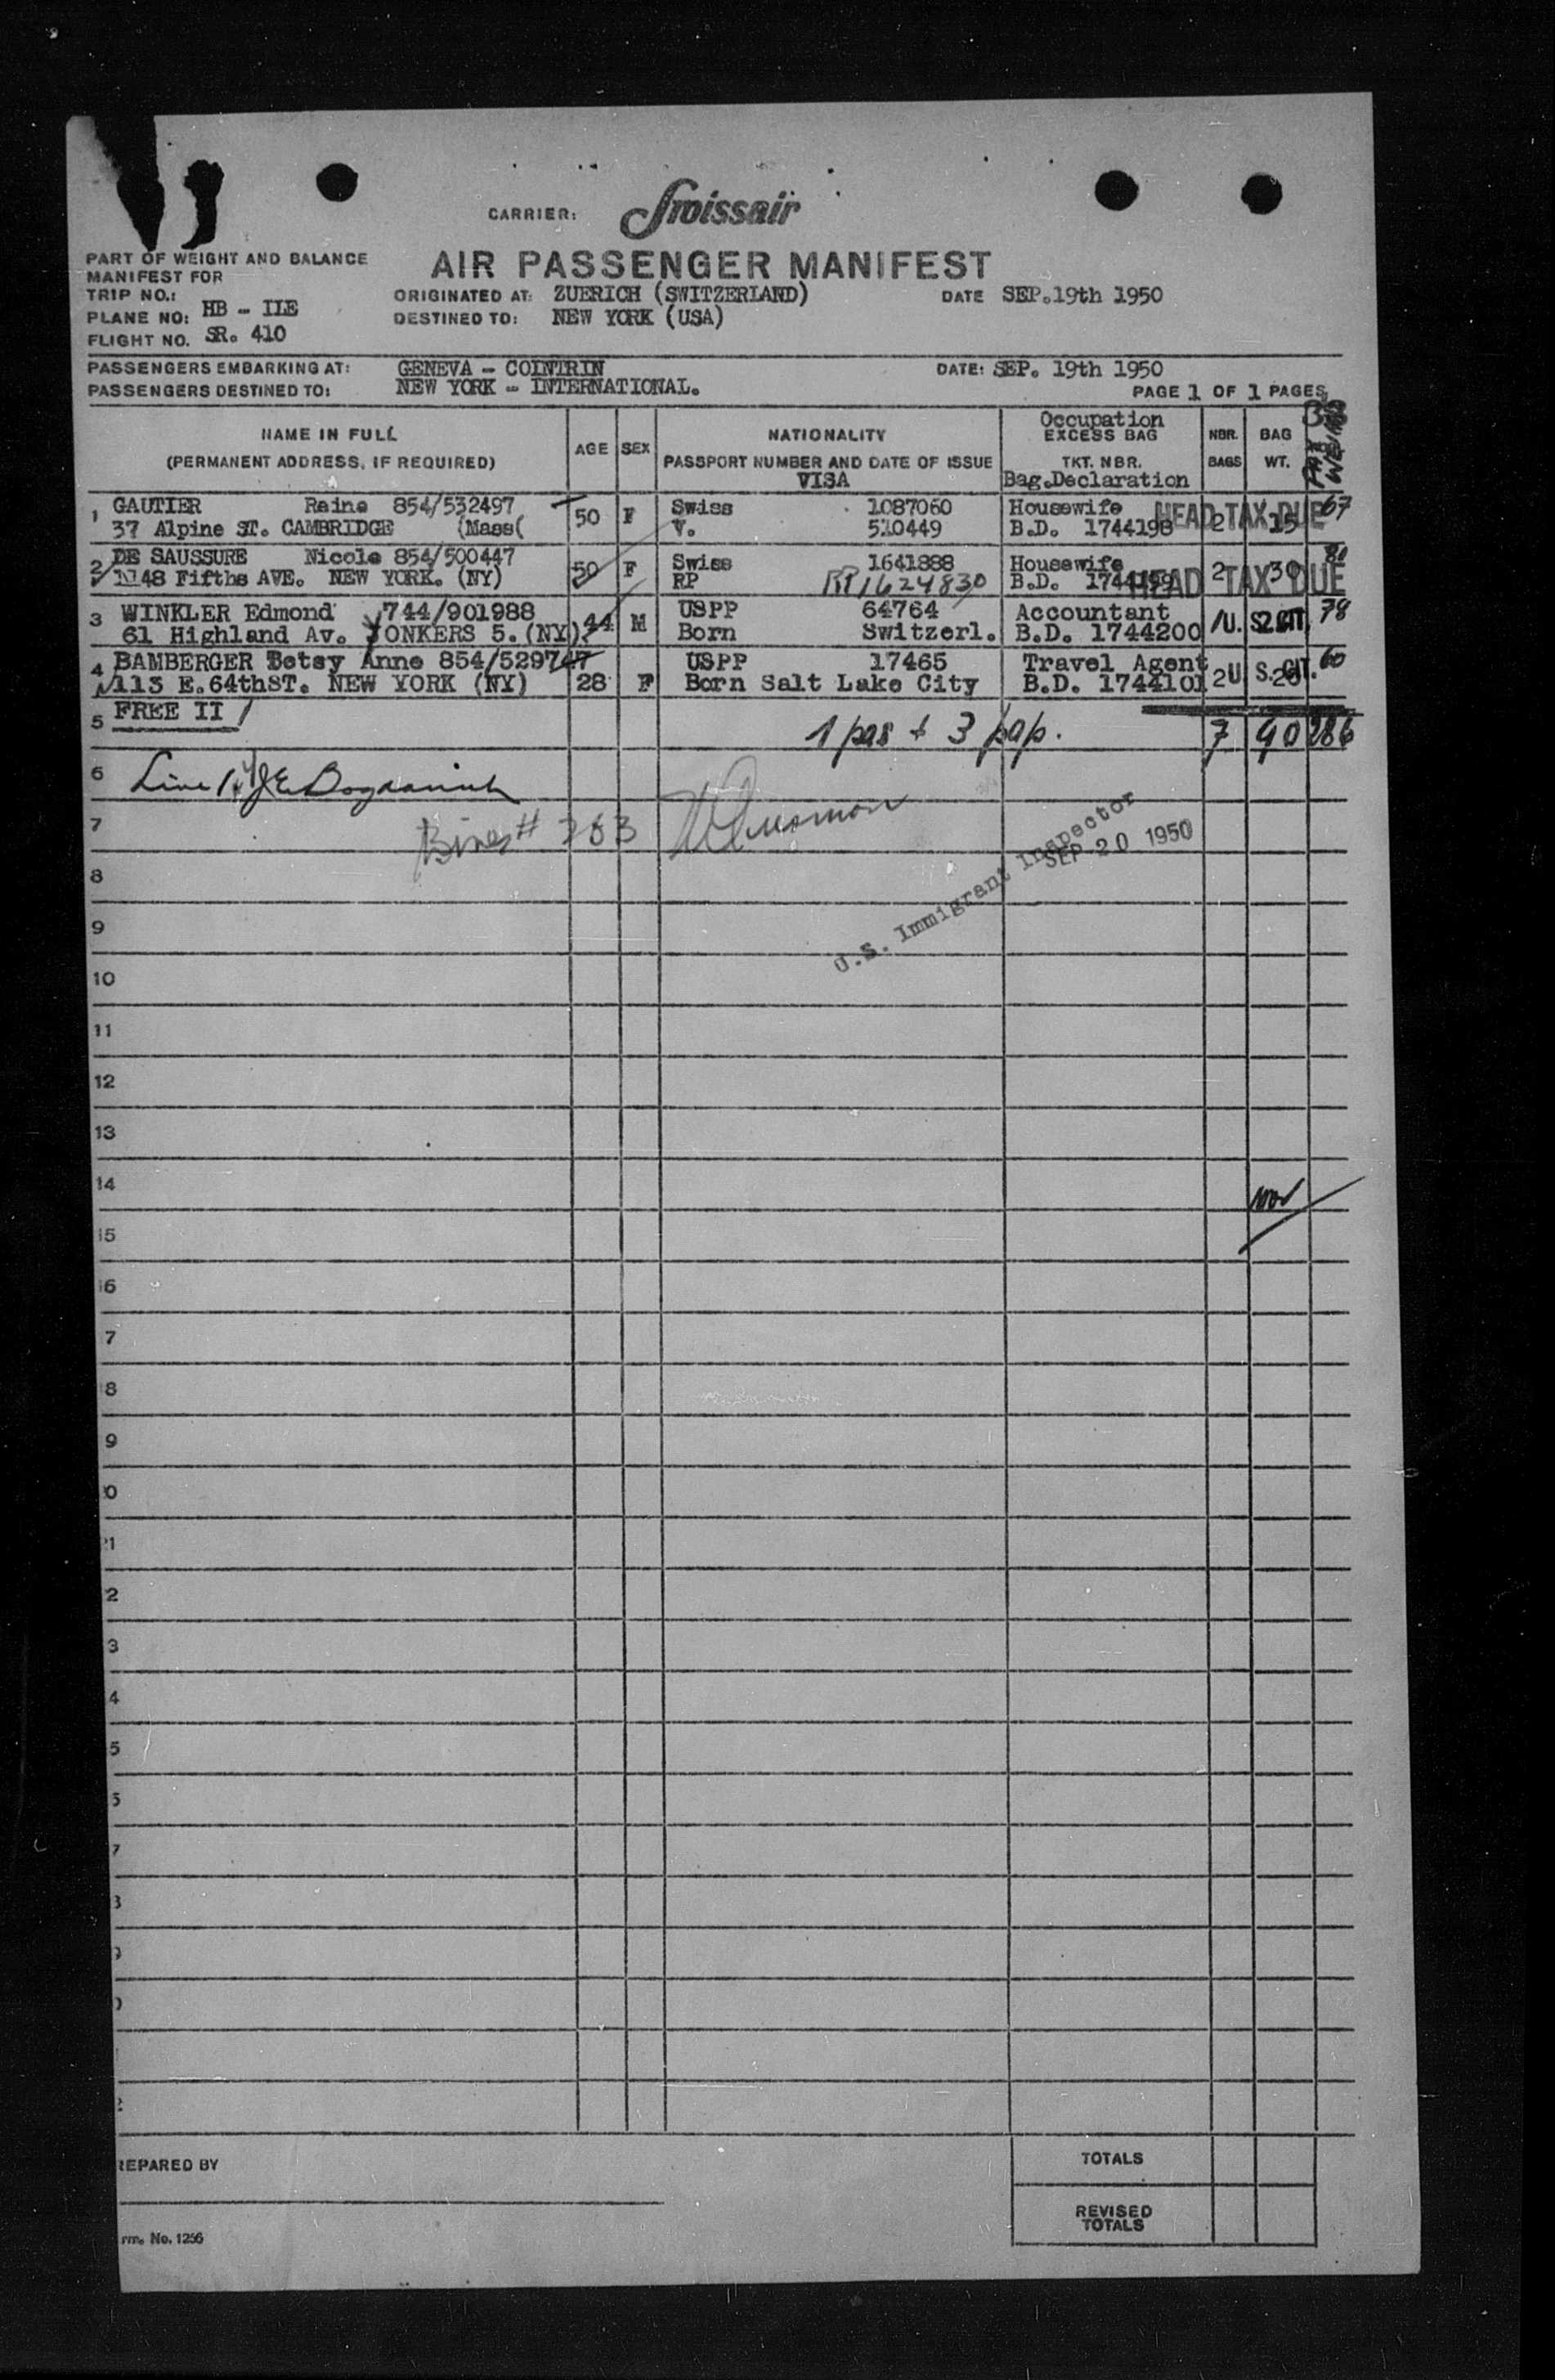 CARRIER: Swissair
PART OF WEIGHT AND BALANCE
MANIFEST FOR
AIR PASSENGER MANIFEST
TRIP NO.:
ORIGINATED AT: ZUERICH (SWITZERLAND) DATE SEP.19th 1950
PLANE NO: HB - ILE
DESTINED TO: NEW YORK (USA)
FLIGHT NO. SR. 410
PASSENGERS EMBARKING AT: GENEVA - COINTRIN DATE: SEP. 19th 1950
PASSENGERS DESTINED TO: NEW YORK - INTERNATIONAL. PAGE 1 OF 1 PAGES
NAME IN FULL AGE SEX NATIONALITY Occupation EXCESS BAG NBR. BAG
(PERMANENT ADDRESS, IF REQUIRED) PASSPORT NUMBER AND DATE OF ISSUE TKT. NBR. BAGS WT.
VISA Bag.Declaration
1 GAUTIER Reine 854/532497 50 F Swiss 1087060 Housewife HEAD TAX DUE 67
37 Alpine ST. CAMBRIDGE (Mass( V. 510449 B.D. 1744198 2 15
2 DE SAUSSURE Nicole 854/500447 50 F Swiss 1641888 Housewife 2 30 80
1148 Fifths AVE. NEW YORK. (NY) RP RP1624830 B.D. 1744199 HEAD TAX DUE
3 WINKLER Edmond 744/901988 44 M USPP 64764 Accountant 1 U.S. CIT. 78
61 Highland Av. YONKERS 5. (NY). Born Switzerl. B.D. 1744200
4 BAMBERGER Betsy Anne 854/529747 USPP 17465 Travel Agent 2 U.S. CIT. 60
113 E.64thST. NEW YORK (NY) 28 F Born Salt Lake City B.D. 1744101
5 FREE II 1 pas + 3 pap. 7 90 286
6 Line 1,4 JE
7 # 353
U.S. Immigrant Inspector
SEP 20 1950
8
9
10
11
12
13
14
15
16
7
8
9
0
1
2
3
4
5
7
3
REPARED BY TOTALS
REVISED
TOTALS
rm. No. 1256